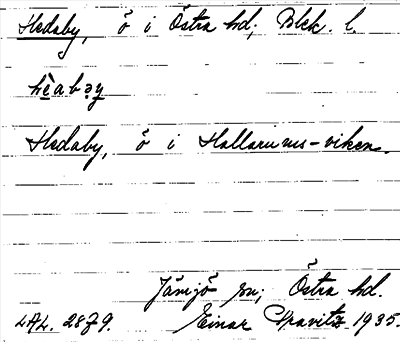 Hedaby, ö i Östra hd; Blek. l.
hèabəy
Hedaby, ö i Hallarums-viken.
Jämjö sn; Östra hd.
LAL. 2879. Einar Gravitz 1935.